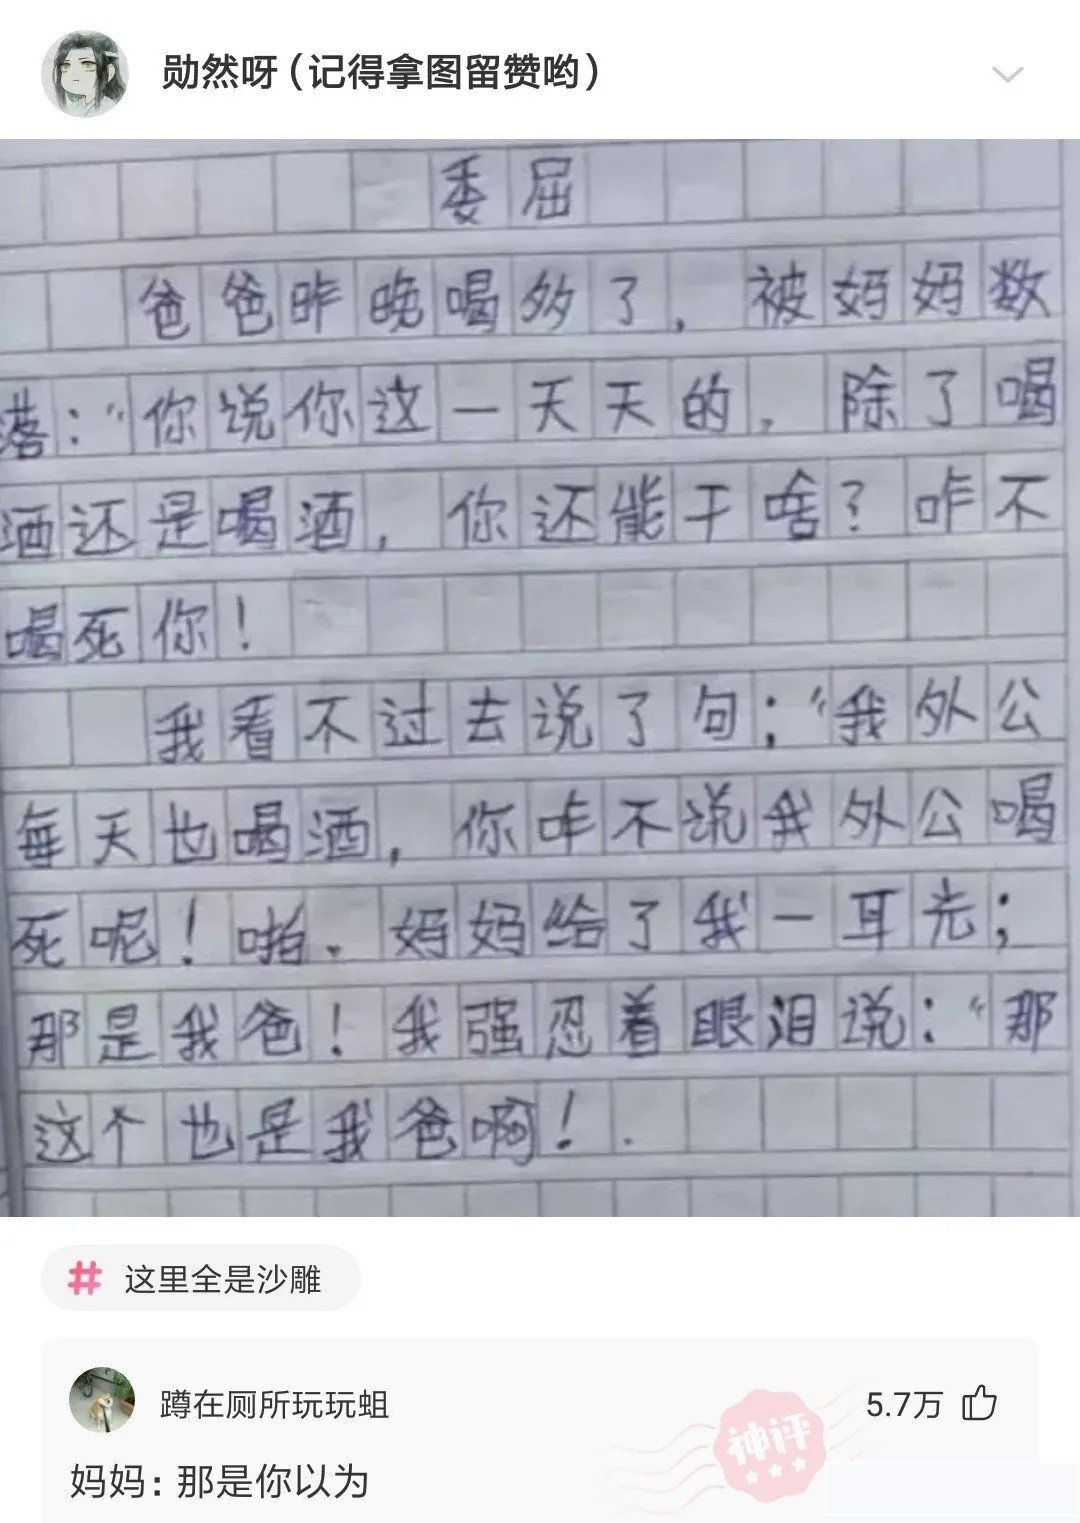 勋然呀(记得拿图留赞哟)
委屈
爸爸昨晚喝多了，被妈妈数
落：“你说你这一天天的，除了喝
酒还是喝酒，你还能干啥？咋不
喝死你！
我看不过去说了句；“我外公
每天也喝酒，你咋不说我外公喝
死呢！啪.妈妈给了我一耳光；
那是我爸！我强忍着眼泪说：“那
这个也是我爸啊！.
# 这里全是沙雕
蹲在厕所玩玩蛆
5.7万
神评
妈妈：那是你以为